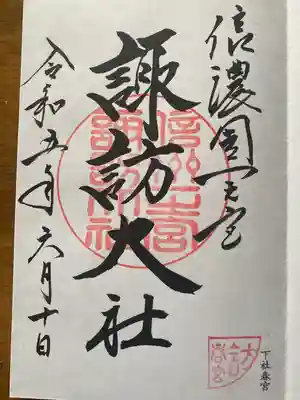 信濃國一之宮
下社春宮
諏訪大社
令和五年六月十日